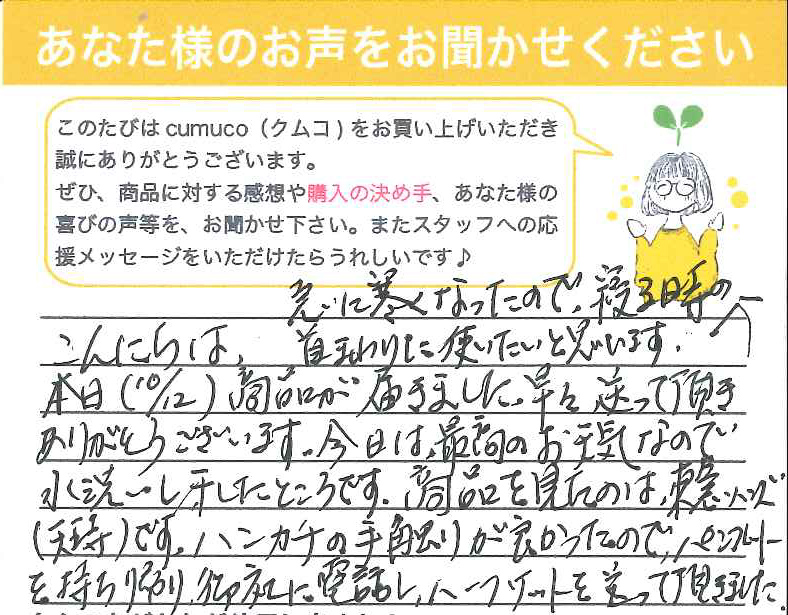 あなた様のお声をお聞かせください
このたびは cumuco（クムコ）をお買い上げいただき
誠にありがとうございます。
ぜひ、商品に対する感想や購入の決め手、あなた様の
喜びの声等を、お聞かせ下さい。またスタッフへの応
援メッセージをいただけたらうれしいです♪
急に寒くなったので、寝る時の
こんにちは、 首まわりに使いたいと思います。
本日（10/12）商品が届きました。早々送って頂き
ありがとうございます。今日は、最高のお天気なので
水洗いし干したところです。商品を見たのは、東急ハンズ
です。ハンカチの手触りが良かったので、パンフレット
を持ち帰り、御社に電話し、ハーフケットを送って頂きました。